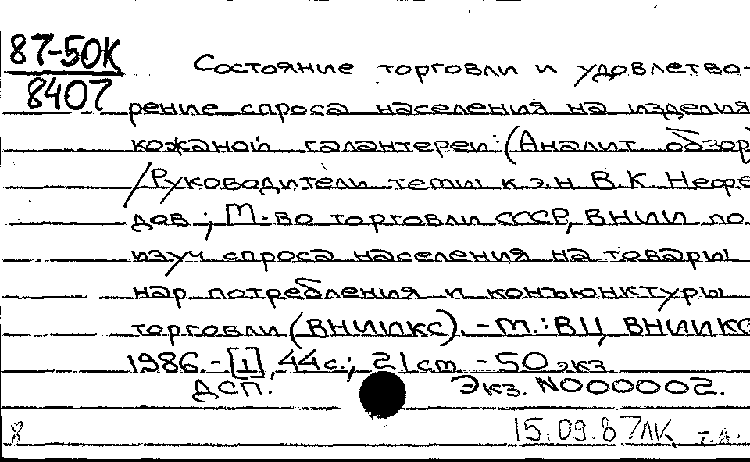 87-50К
8407
Состояние торговли и удовлетво-
рение спроса населения на изделия
кожаной галантереи: (Аналит. обзор
/Руководители темы к.э.н В.К. Нефе
дов ; М-во торговли СССР, ВНИИ по
изуч спроса населения на товары
нар потребления и конъюнктуры
торговли (ВНИИКС). - М.: ВЦ ВНИИКС
1986. - [1], 44 с.; 21 см - 50 экз
ДСП. Экз. N000002.
Я 15.09.87 ЛК т.д.